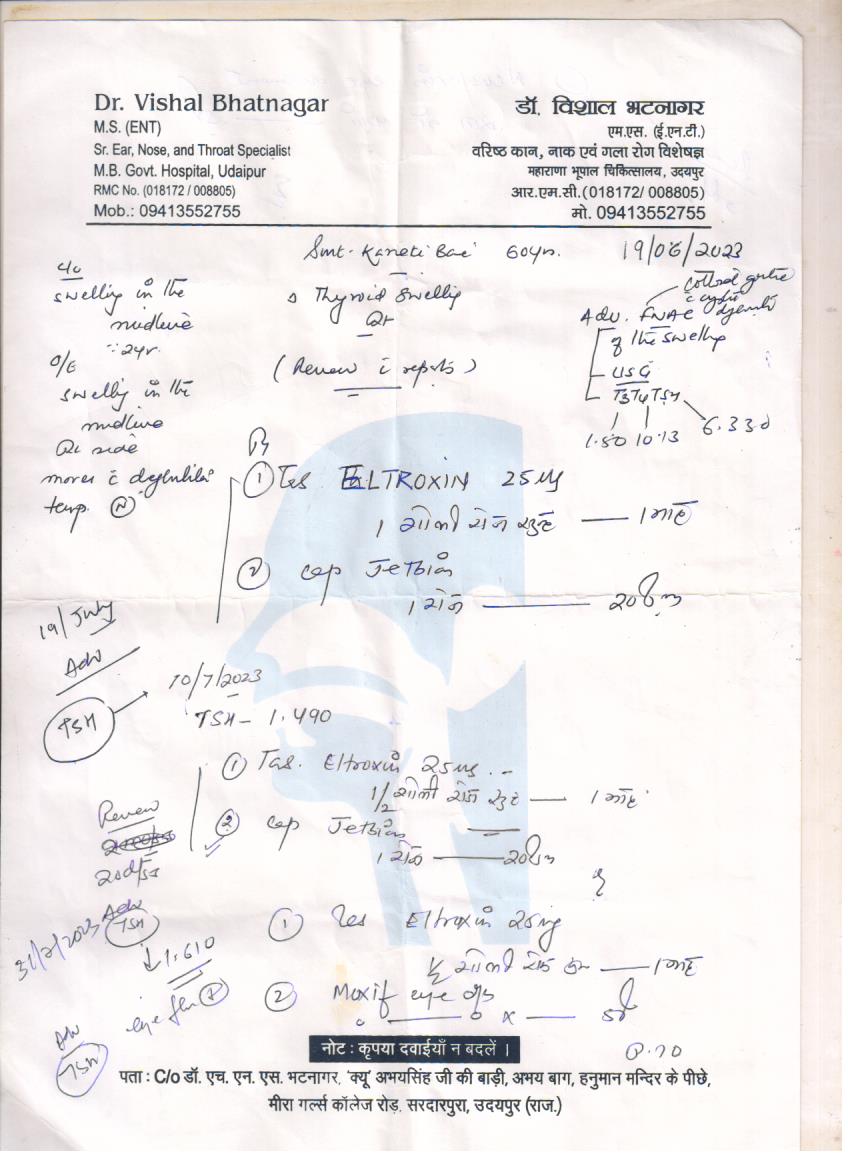 Dr. Vishal Bhatnagar
M.S. (ENT)
Sr. Ear, Nose, and Throat Specialist
M.B. Govt. Hospital, Udaipur
RMC No. (018172 / 008805)
Mob.: 09413552755
डॉ. विशाल भटनागर
एम.एस. (ई.एन.टी.)
वरिष्ठ कान, नाक एवं गला रोग विशेषज्ञ
महाराणा भूपाल चिकित्सालय, उदयपुर
आर.एम.सी.(018172/ 008805)
मो. 09413552755
Smt. Kaneti Bai 60yr. 19/06/2023
c/o
swelling in the
midline
2yr.
O/E
swelling in the
midline
Rt side
moves c deglutition
temp. (N)
Thyroid Swelling
Rt
(Review c reports)
Adv. FNAC
of the swelling
USG
T3 T4 TSH
1.50 10.13 6.330
① Tab ELTROXIN 25 µg
1 गोली रोज सुबह — 1 माह
② Cap Jetbion
1 रोज — 20 दिन
19/July
Adv
TSH
10/7/2023
TSH - 1.490
① Tab. Eltroxin 25 µg
1/2 गोली रोज सुबह — 1 माह
② Cap Jetbion
1 रोज — 20 दिन
Review
Adv
TSH
1.610
① Tab Eltroxin 25 mg
1/2 गोली रोज — 1 माह
② Moxif eye
Adv
TSH
नोट : कृपया दवाईयाँ न बदलें ।
पता : C/o डॉ. एच. एन. एस. भटनागर, 'क्यू' अभयसिंह जी की बाड़ी, अभय बाग, हनुमान मन्दिर के पीछे,
मीरा गर्ल्स कॉलेज रोड़, सरदारपुरा, उदयपुर (राज.)